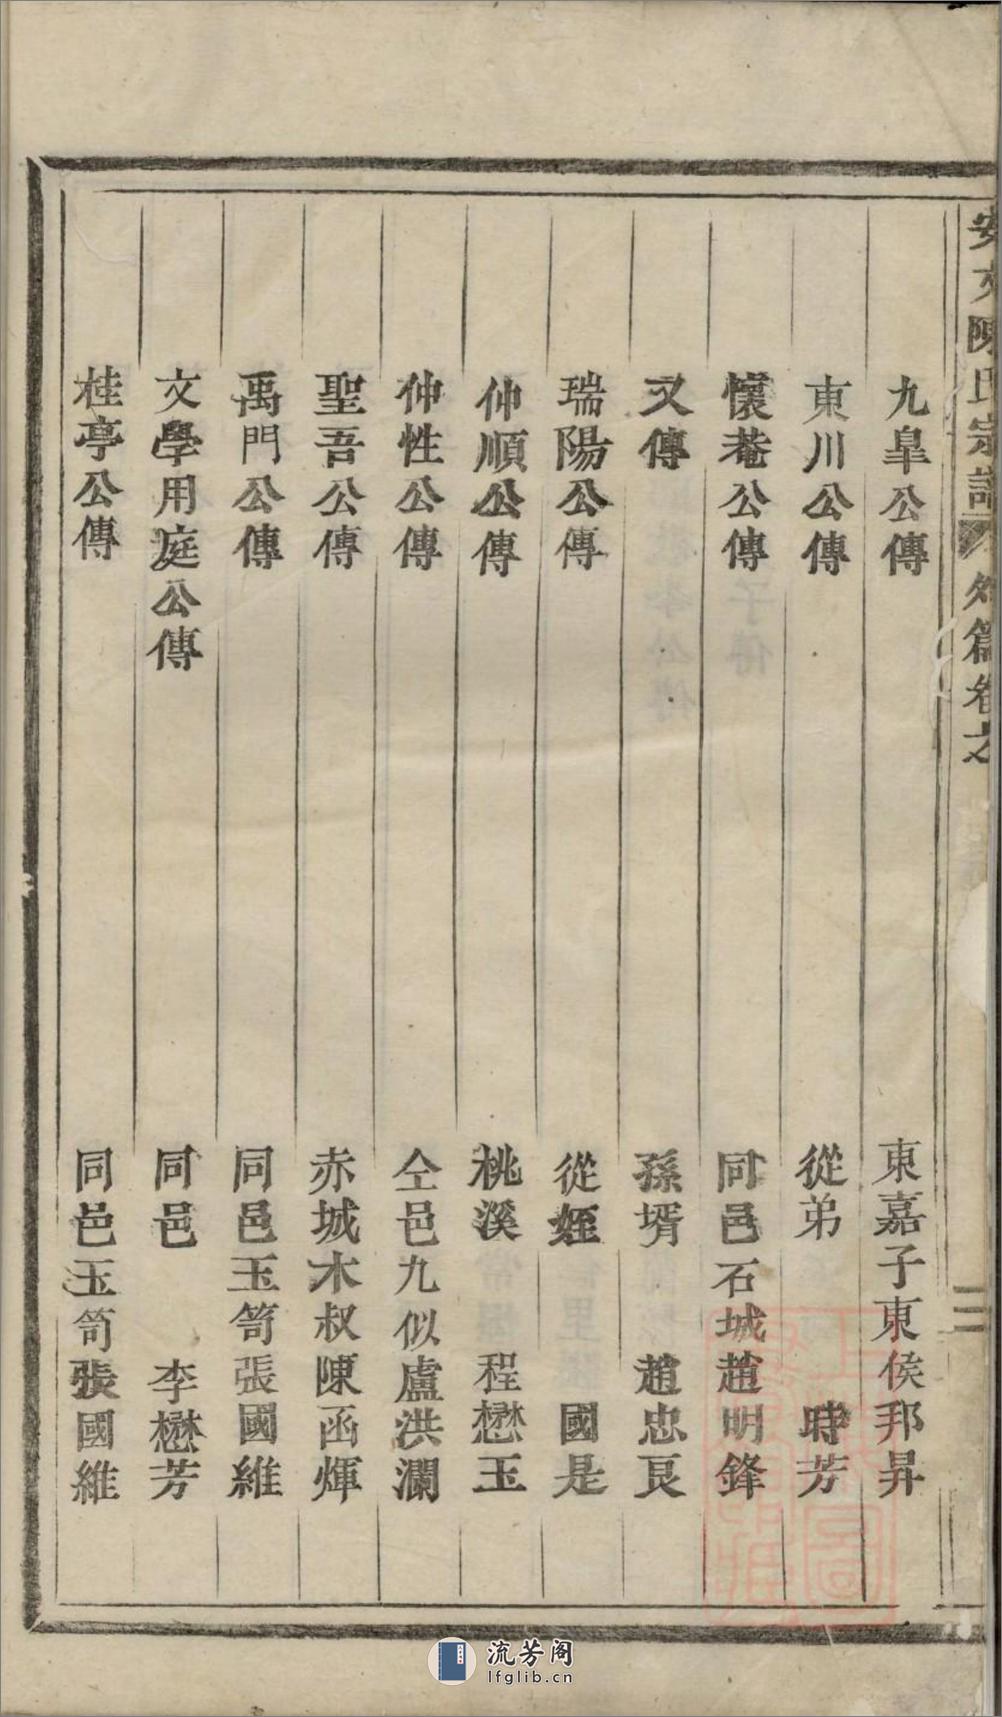 安文陳氏宗譜 外篇卷之
三
九皐公傳 東嘉子東侯邦昇
東川公傳 從弟 時芳
懷菴公傳 同邑石城趙明鋒
又傳 孫壻 趙忠良
瑞陽公傳 從姪 國是
仲順公傳 桃溪 程懋玉
仲性公傳 仝邑九似盧洪瀾
聖吾公傳 赤城木叔陳函煇
禹門公傳 同邑玉笥張國維
文學用庭公傳 同邑 李懋芳
桂亭公傳 同邑玉笥張國維
流芳阁
lfglib.cn